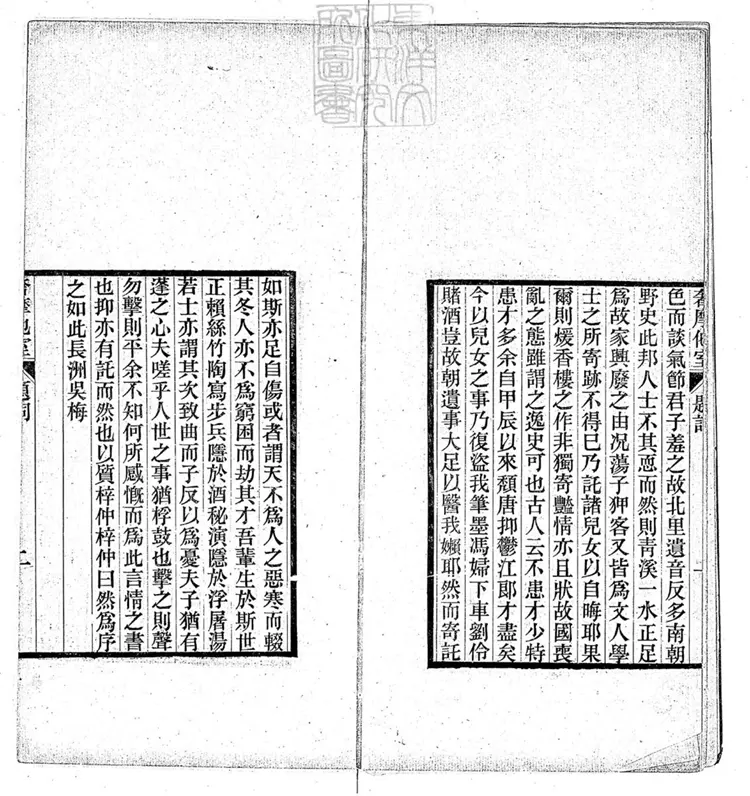 色而談氣節君子羞之故北里遺音反多南朝
野史此邦人士不其恧而然則青溪一水正足
爲故家興廢之由況蕩子狎客又皆爲文人學
士之所寄跡不得已乃託諸兒女以自晦耶果
爾則煖香樓之作非獨寄豔情亦且狀故國喪
亂之態雖謂之逸史可也古人云不患才少特
患才多余自甲辰以來頹唐抑鬱江郎才盡矣
今以兒女之事乃復盜我筆墨馮婦下車劉伶
賭酒豈故朝遺事大足以醫我嬾耶然而寄託
如斯亦足自傷或者謂天不爲人之惡寒而輟
其冬人亦不爲窮困而劫其才吾輩生於斯世
正賴絲竹陶寫步兵隱於酒秘演隱於浮屠湯
若士亦謂其次致曲而子反以爲憂夫子猶有
蓬之心夫嗟乎人世之事猶桴鼓也擊之則聲
勿擊則平余不知何所感慨而爲此言情之書
也抑亦有託而然也以質梓仲梓仲曰然爲序
之如此長洲吳梅
二